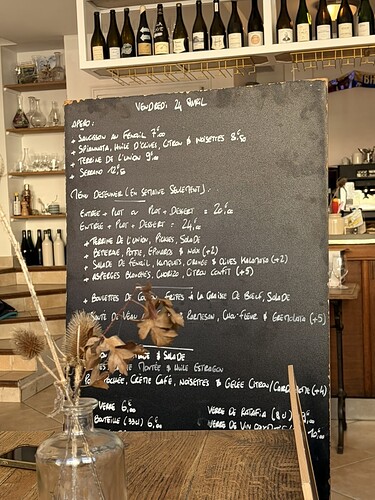 VENDREDI 24 AVRIL
APÉRO:
+ SAUCISSON AU FENOUIL 7€00
+ SPIANNATA, HUILE D'OLIVES, CITRON & NOISETTES 8€50
+ TERRINE DE L'UNION 9€00
+ SERRANO 12€50
MENU DEJEUNER (EN SEMAINE SEULEMENT):
ENTRÉE + PLAT OU PLAT + DESSERT = 20€00
ENTRÉE + PLAT + DESSERT = 24€00
+ TERRINE DE L'UNION, PICKLES, SALADE
+ BETTERAVE, POTTE, EPINARDS & NOIX (+2)
+ SALADE DE FENOUIL, ORANGE & OLIVES KALAMATA (+2)
+ ASPERGES BLANCHES, CHORIZO, CITRON CONFIT (+5)
+ BOULETTES DE FRITES À LA GRAISSE DE BŒUF, SALADE
DE VEAU PARMESAN, CHOU-FLEUR & GREMOLATA (+5)
& SALADE
MONTÉE & HUILE ESTRAGON
CRÈME CAFÉ, NOISETTES & GELÉE CITRON/ (+4)
VERRE 6€00 VERRE DE RATAFIA (8cl)
BOUTEILLE (33cl) 6€00 VERRE DE VIN 10€00